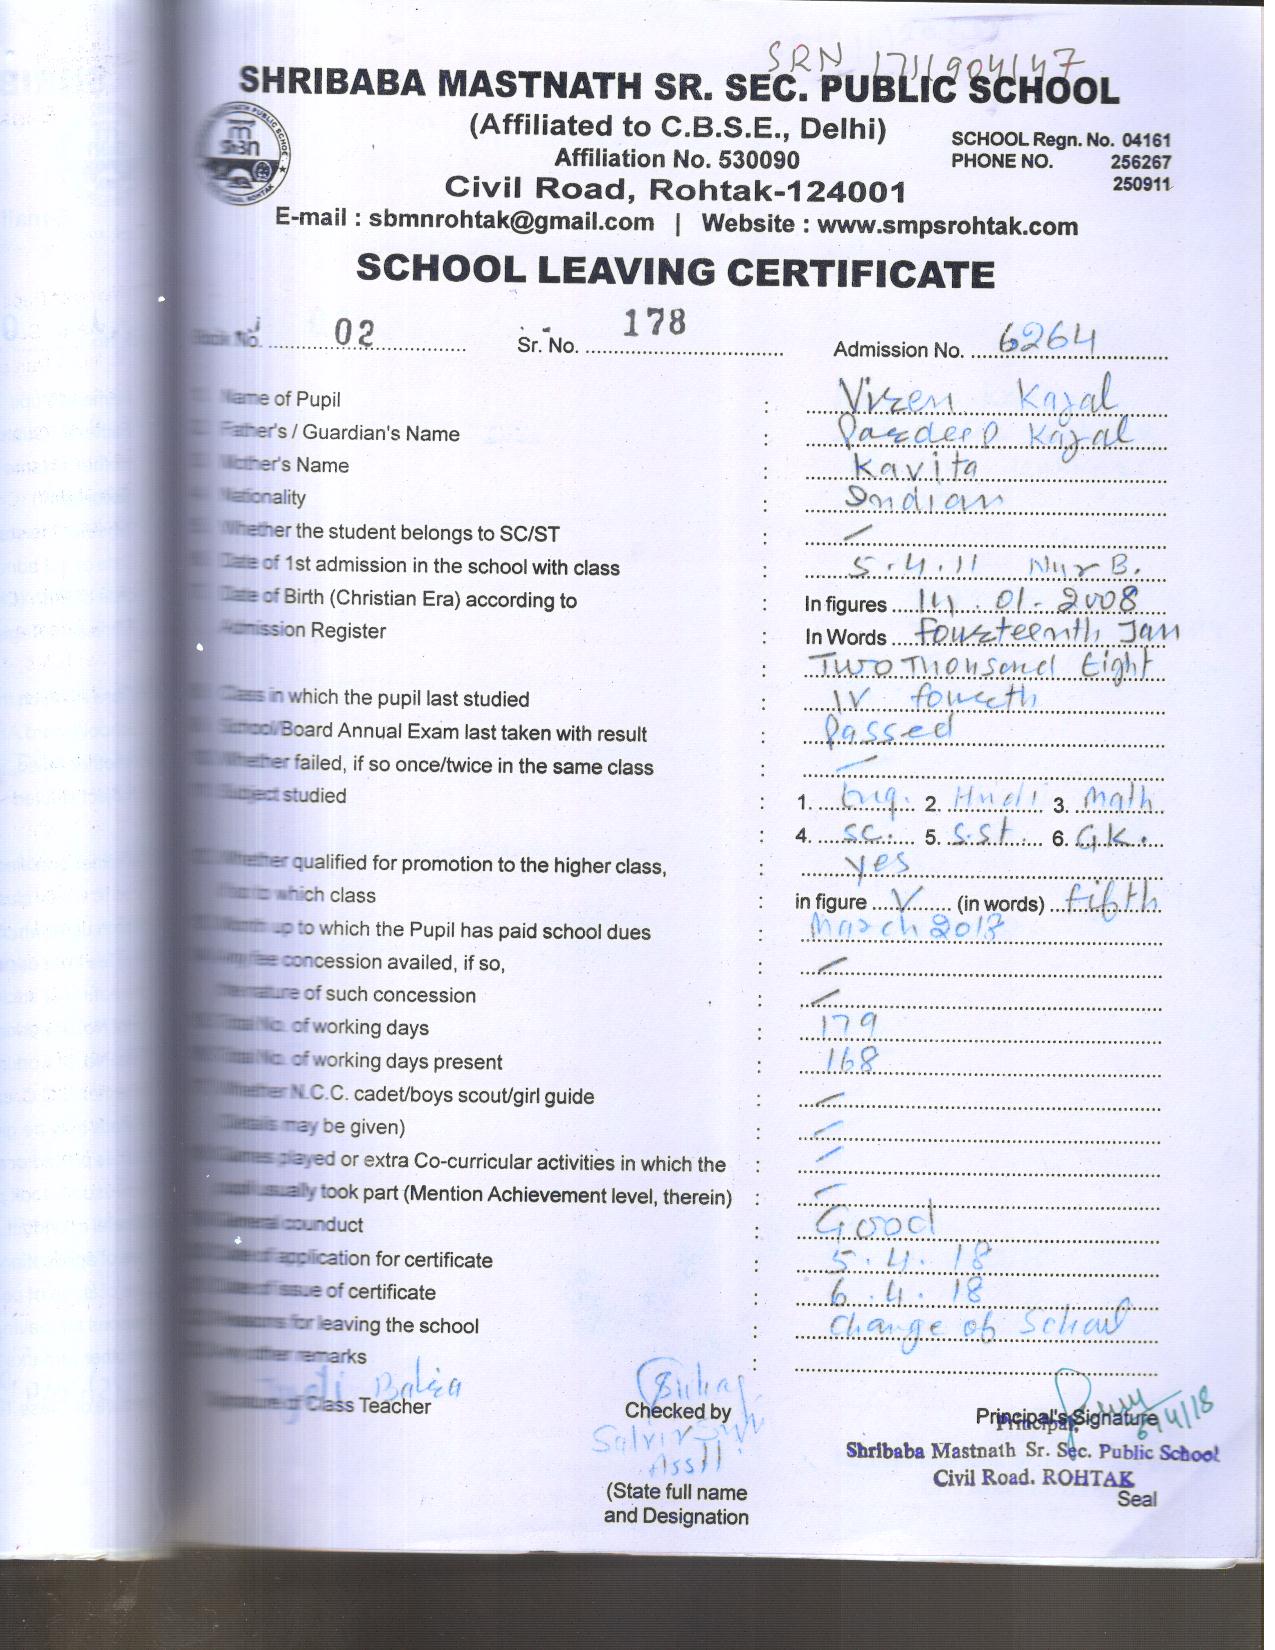 SRN 1711904147
SHRIBABA MASTNATH SR. SEC. PUBLIC SCHOOL
(Affiliated to C.B.S.E., Delhi)
SCHOOL Regn. No. 04161
Affiliation No. 530090
PHONE NO. 256267
250911
Civil Road, Rohtak-124001
E-mail : sbmnrohtak@gmail.com | Website : www.smpsrohtak.com
SCHOOL LEAVING CERTIFICATE
Book No. 02 Sr. No. 178 Admission No. 6264
Name of Pupil : Viren Kajal
Father's / Guardian's Name : Pardeep Kajal
Mother's Name : Kavita
Nationality : Indian
Whether the student belongs to SC/ST : –
Date of 1st admission in the school with class : 5.4.11 Nur B.
Date of Birth (Christian Era) according to : In figures 14.01-2008
Admission Register : In Words Fourteenth Jan
: Two Thousand Eight
Class in which the pupil last studied : IV fourth
School/Board Annual Exam last taken with result : Passed
Whether failed, if so once/twice in the same class : –
Subject studied : 1. Eng. 2. Hindi 3. Math
: 4. SC. 5. S.St. 6. G.K.
Whether qualified for promotion to the higher class, : yes
which class : in figure V (in words) fifth
Month up to which the Pupil has paid school dues : March 2018
Any fee concession availed, if so, : –
The nature of such concession : –
Total No. of working days : 179
Total No. of working days present : 168
Whether N.C.C. cadet/boys scout/girl guide : –
(Details may be given) : –
Games played or extra Co-curricular activities in which the : –
pupil usually took part (Mention Achievement level, therein) : –
General counduct : Good
Date of application for certificate : 5.4.18
Date of issue of certificate : 6.4.18
Reasons for leaving the school : Change of School
Any other remarks :
Signature of Class Teacher Checked by Principal's Signature
6/4/18
Principal,
Shribaba Mastnath Sr. Sec. Public School
Civil Road, ROHTAK
Seal
(State full name
and Designation